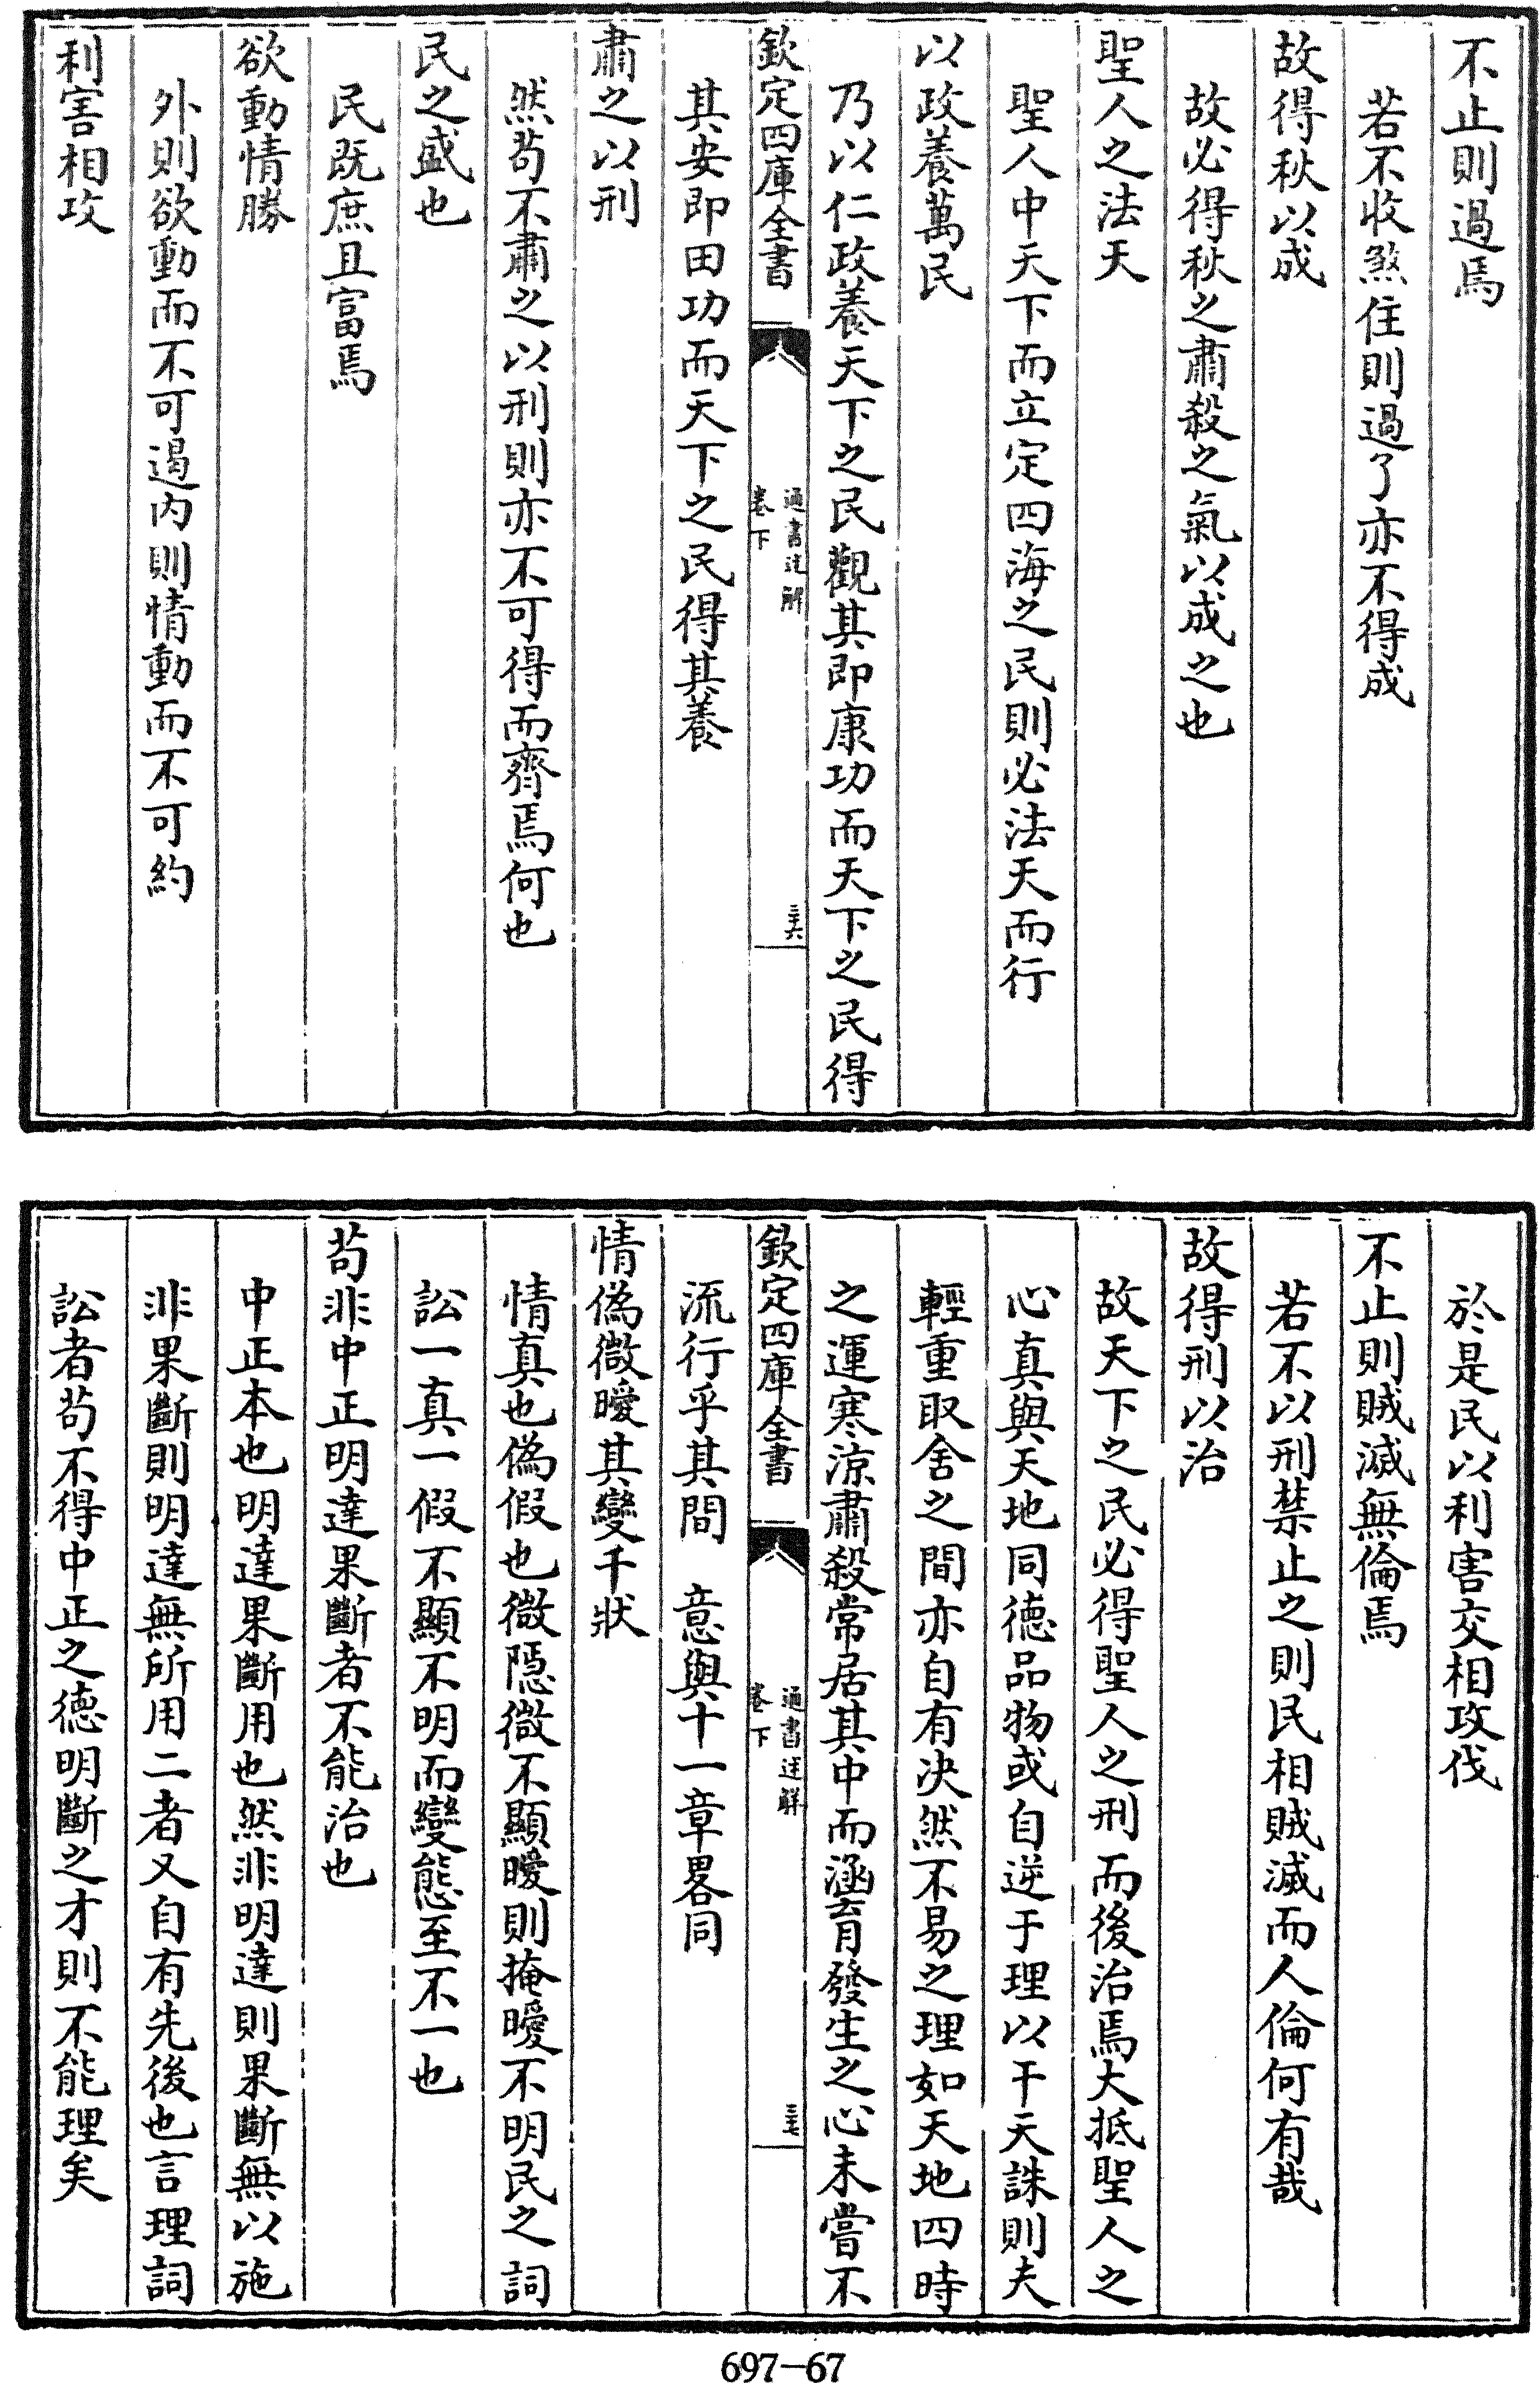 不止則過焉
若不收煞住則過了亦不得成
故得秋以成
故必得秋之肅殺之氣以成之也
聖人之法天
聖人中天下而立定四海之民則必法天而行
以政養萬民
乃以仁政養天下之民觀其即康功而天下之民得
欽定四庫全書
通書述解
卷下
三十六
其安即田功而天下之民得其養
肅之以刑
然苟不肅之以刑則亦不可得而齊焉何也
民之盛也
民既庶且富焉
欲動情勝
外則欲動而不可遏內則情動而不可約
利害相攻
於是民以利害交相攻伐
不止則賊滅無倫焉
若不以刑禁止之則民相賊滅而人倫何有哉
故得刑以治
故天下之民必得聖人之刑而後治焉大抵聖人之
心真與天地同徳品物或自逆于理以干天誅則夫
輕重取舍之間亦自有决然不易之理如天地四時
之運寒涼肅殺常居其中而涵育發生之心未嘗不
欽定四庫全書
通書述解
卷下
三十七
流行乎其間　意與十一章畧同
情偽微曖其變千狀
情真也偽假也微隠微不顯曖則掩曖不明民之詞
訟一真一假不顯不明而變態至不一也
苟非中正明達果斷者不能治也
中正本也明達果斷用也然非明達則果斷無以施
非果斷則明達無所用二者又自有先後也言理詞
訟者苟不得中正之徳明斷之才則不能理矣
697-67